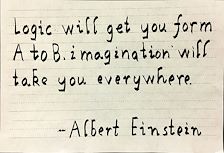 Logic will get you form
A to B. imagination will
take you everywhere.
-Albert Einstein